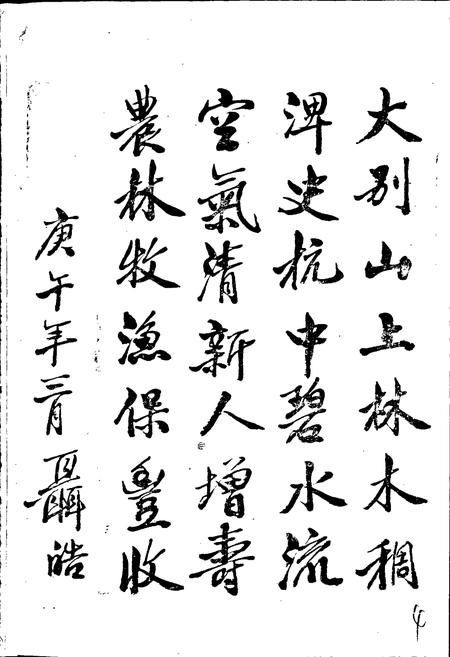 大别山上林木稠
淠史杭中碧水流
空氣清新人增壽
農林牧漁保豐收
庚午年三月 聶皓
4